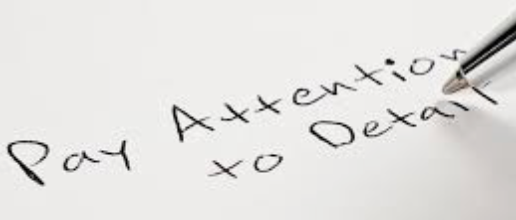 Pay Attention
to Detail